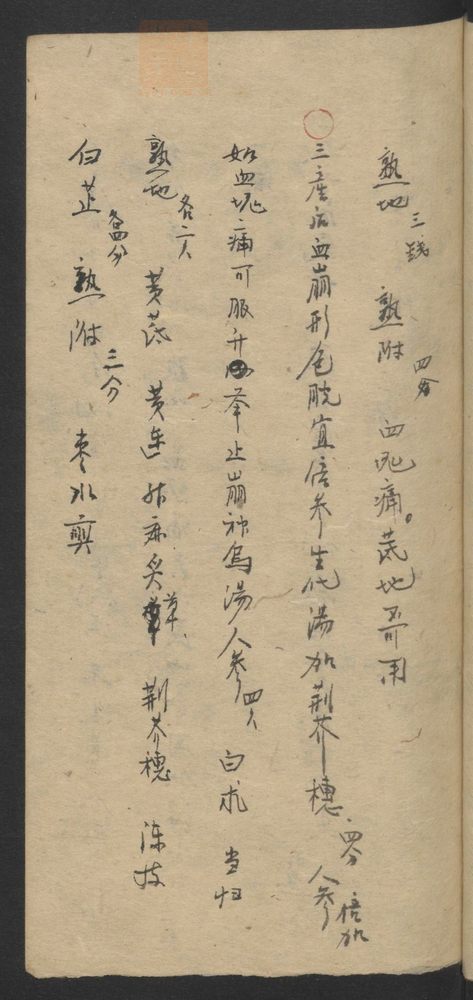 熟地三錢 熟附四分 血塊痛。芪地不可用
三產后血崩形色脫宜倍參生化湯加荆芥穗四分 人參倍加
如血塊痛可服升舉止崩神烏湯人參四 白朮 当归
熟地各二 黄芪 黄連 炙草 荆芥穗 陳皮
白芷各四分 熟附三分 枣水煎